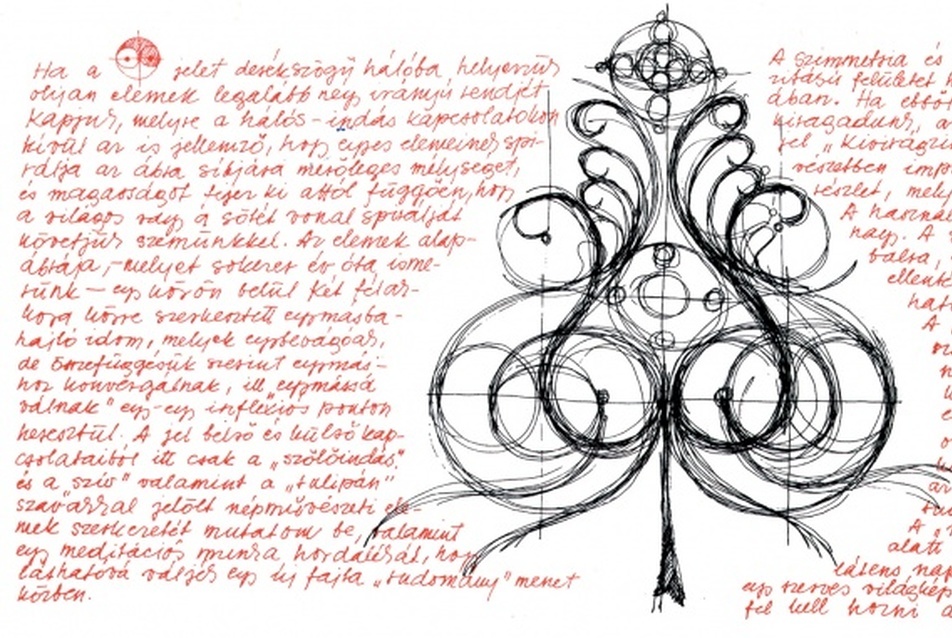 Ha a jelet derékszögű hálóba helyezzük
olyan elemek legalább négy irányú rendjét
kapjuk, melyre a hálós-indás kapcsolatokon
kívül az is jellemző, hogy egyes elemeinek spi-
rálja az ábra síkjára merőleges mélységet,
és magasságot fejez ki attól függően, hogy
a világos vagy a sötét vonal spirálját
követjük szemünkkel. Az elemek alap-
ábrája, – melyet sokezer év óta isme-
rünk – egy körön belül két félak-
kora körre szerkesztett egymásba-
hajló idom, melyek egybevágóak,
de összefüggésük szerint egymás-
hoz konvergálnak, ill. "egymássá
válnak" egy-egy inflexiós ponton
keresztül. A jel belső és külső kap-
csolataiból itt csak a "szőlőindás"
és a "szív" valamint a "tulipán"
szavakkal jelölt népművészeti ele-
mek szerkezetét mutatom be, valamint
egy meditációs munka hordalékát, hogy
láthatóvá váljék egy új fajta "tudomány" menet
közben.
A szimmetria és
ritásis felületet
ában. Ha ebből
kiragadunk, a
fel "kivirágzi
vészetben imp
részlet, mely
A haszná
nagy. A
balra,
ellenté
hat
A
A
alati
látens nap
egy szerves világkép
fel kell hozni a